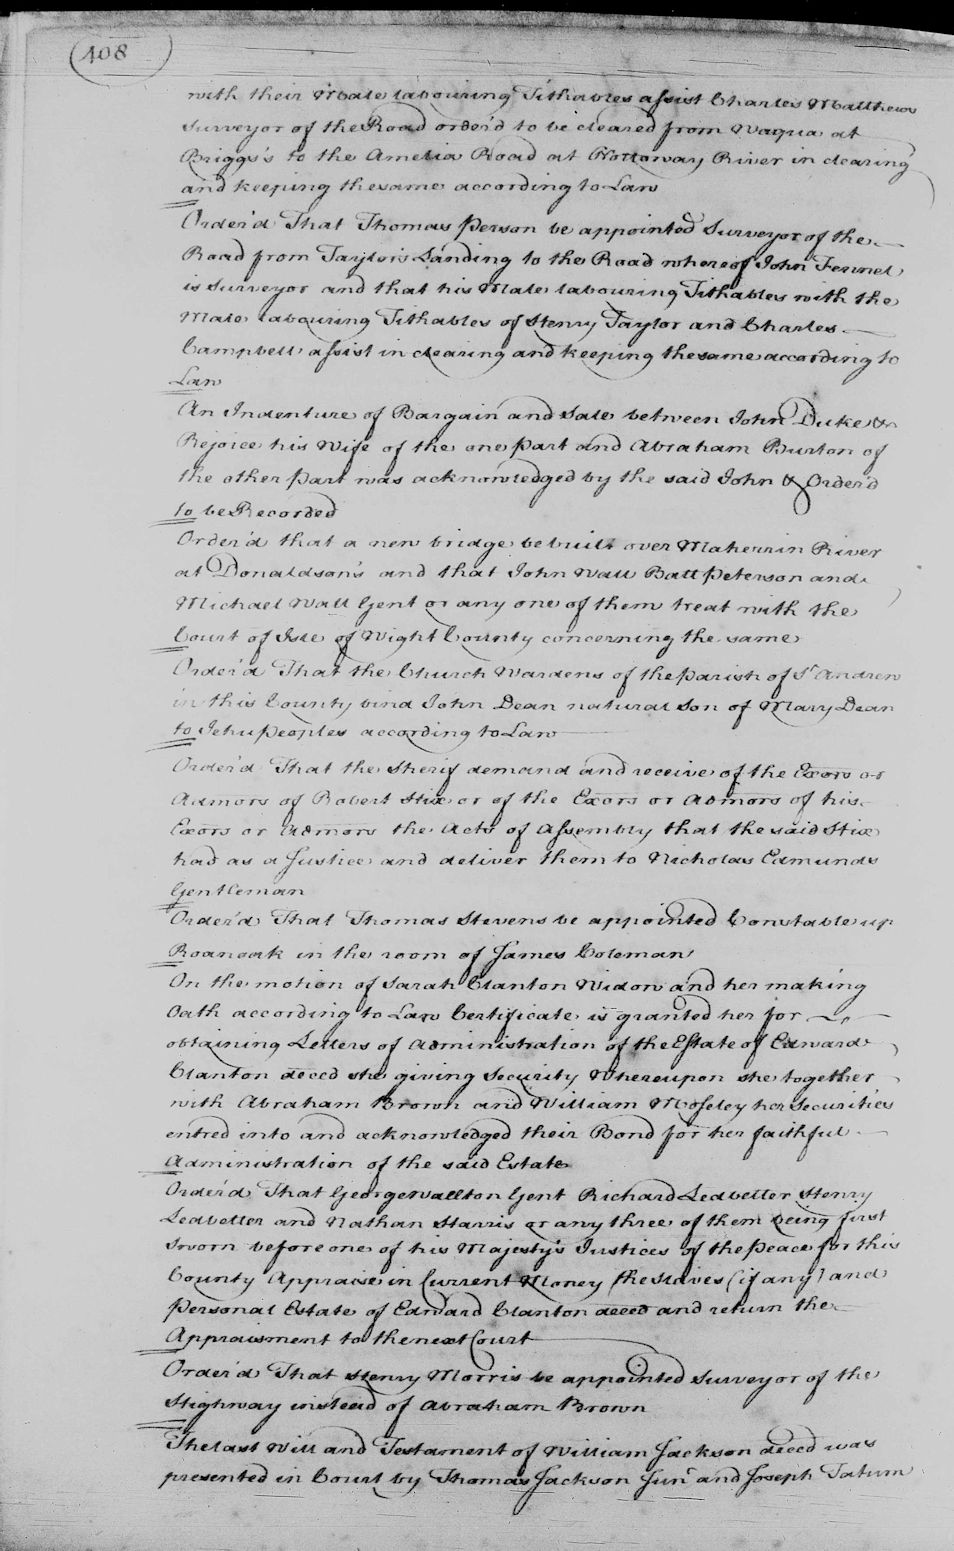 408
with their Male labouring Tithables assist Charles Matthews
Surveyor of the Road order'd to be cleared from Waqua at
Briggs's to the Amelia Road at Nottoway River in clearing
and keeping the same according to Law
Order'd That Thomas Person be appointed Surveyor of the
Road from Taylor's Landing to the Road whereof John Fennel
is Surveyor and that his Male labouring Tithables with the
Male labouring Tithables of Henry Taylor and Charles
Campbell assist in clearing and keeping the same according to
Law
An Indenture of Bargain and Sale between John Duke &
Rejoice his Wife of the one Part and Abraham Burton of
the other Part was acknowledged by the said John & Order'd
to be Recorded
Order'd that a new bridge be built over Maherrin River
at Donaldson's and that John Wall Batt Peterson and
Michael Wall Gent or any one of them treat with the
Court of Isle of Wight County concerning the same
Order'd That the Church Wardens of the Parish of St Andrew
in this County bind John Dean natural Son of Mary Dean
to Jehu Peoples according to Law
Order'd That the Sherif demand and receive of the Exors or
Admors of Robert Hix or of the Exors or Admors of his
Exors or Admors the Acts of Assembly that the said Hix
had as a Justice and deliver them to Nicholas Edmunds
Gentleman
Order'd That Thomas Stevens be appointed Constable up
Roanoak in the room of James Coleman
On the motion of Sarah Clanton Widow and her making
Oath according to Law Certificate is granted her for
obtaining Letters of Administration of the Estate of Edward
Clanton deced she giving Security Whereupon she together
with Abraham Brown and William Moseley her Securities
entred into and acknowledged their Bond for her faithful
Administration of the said Estate
Order'd That George Wallton Gent Richard Ledbetter Henry
Ledbetter and Nathan Harris or any three of them being first
Sworn before one of his Majesty's Justices of the Peace for this
County Appraise in Current Money the Slaves (if any) and
Personal Estate of Edward Clanton deced and return the
Appraisment to the next Court
Order'd That Henry Morris be appointed Surveyor of the
Highway instead of Abraham Brown
The last Will and Testament of William Jackson deced was
presented in Court by Thomas Jackson Junr and Joseph Tatum